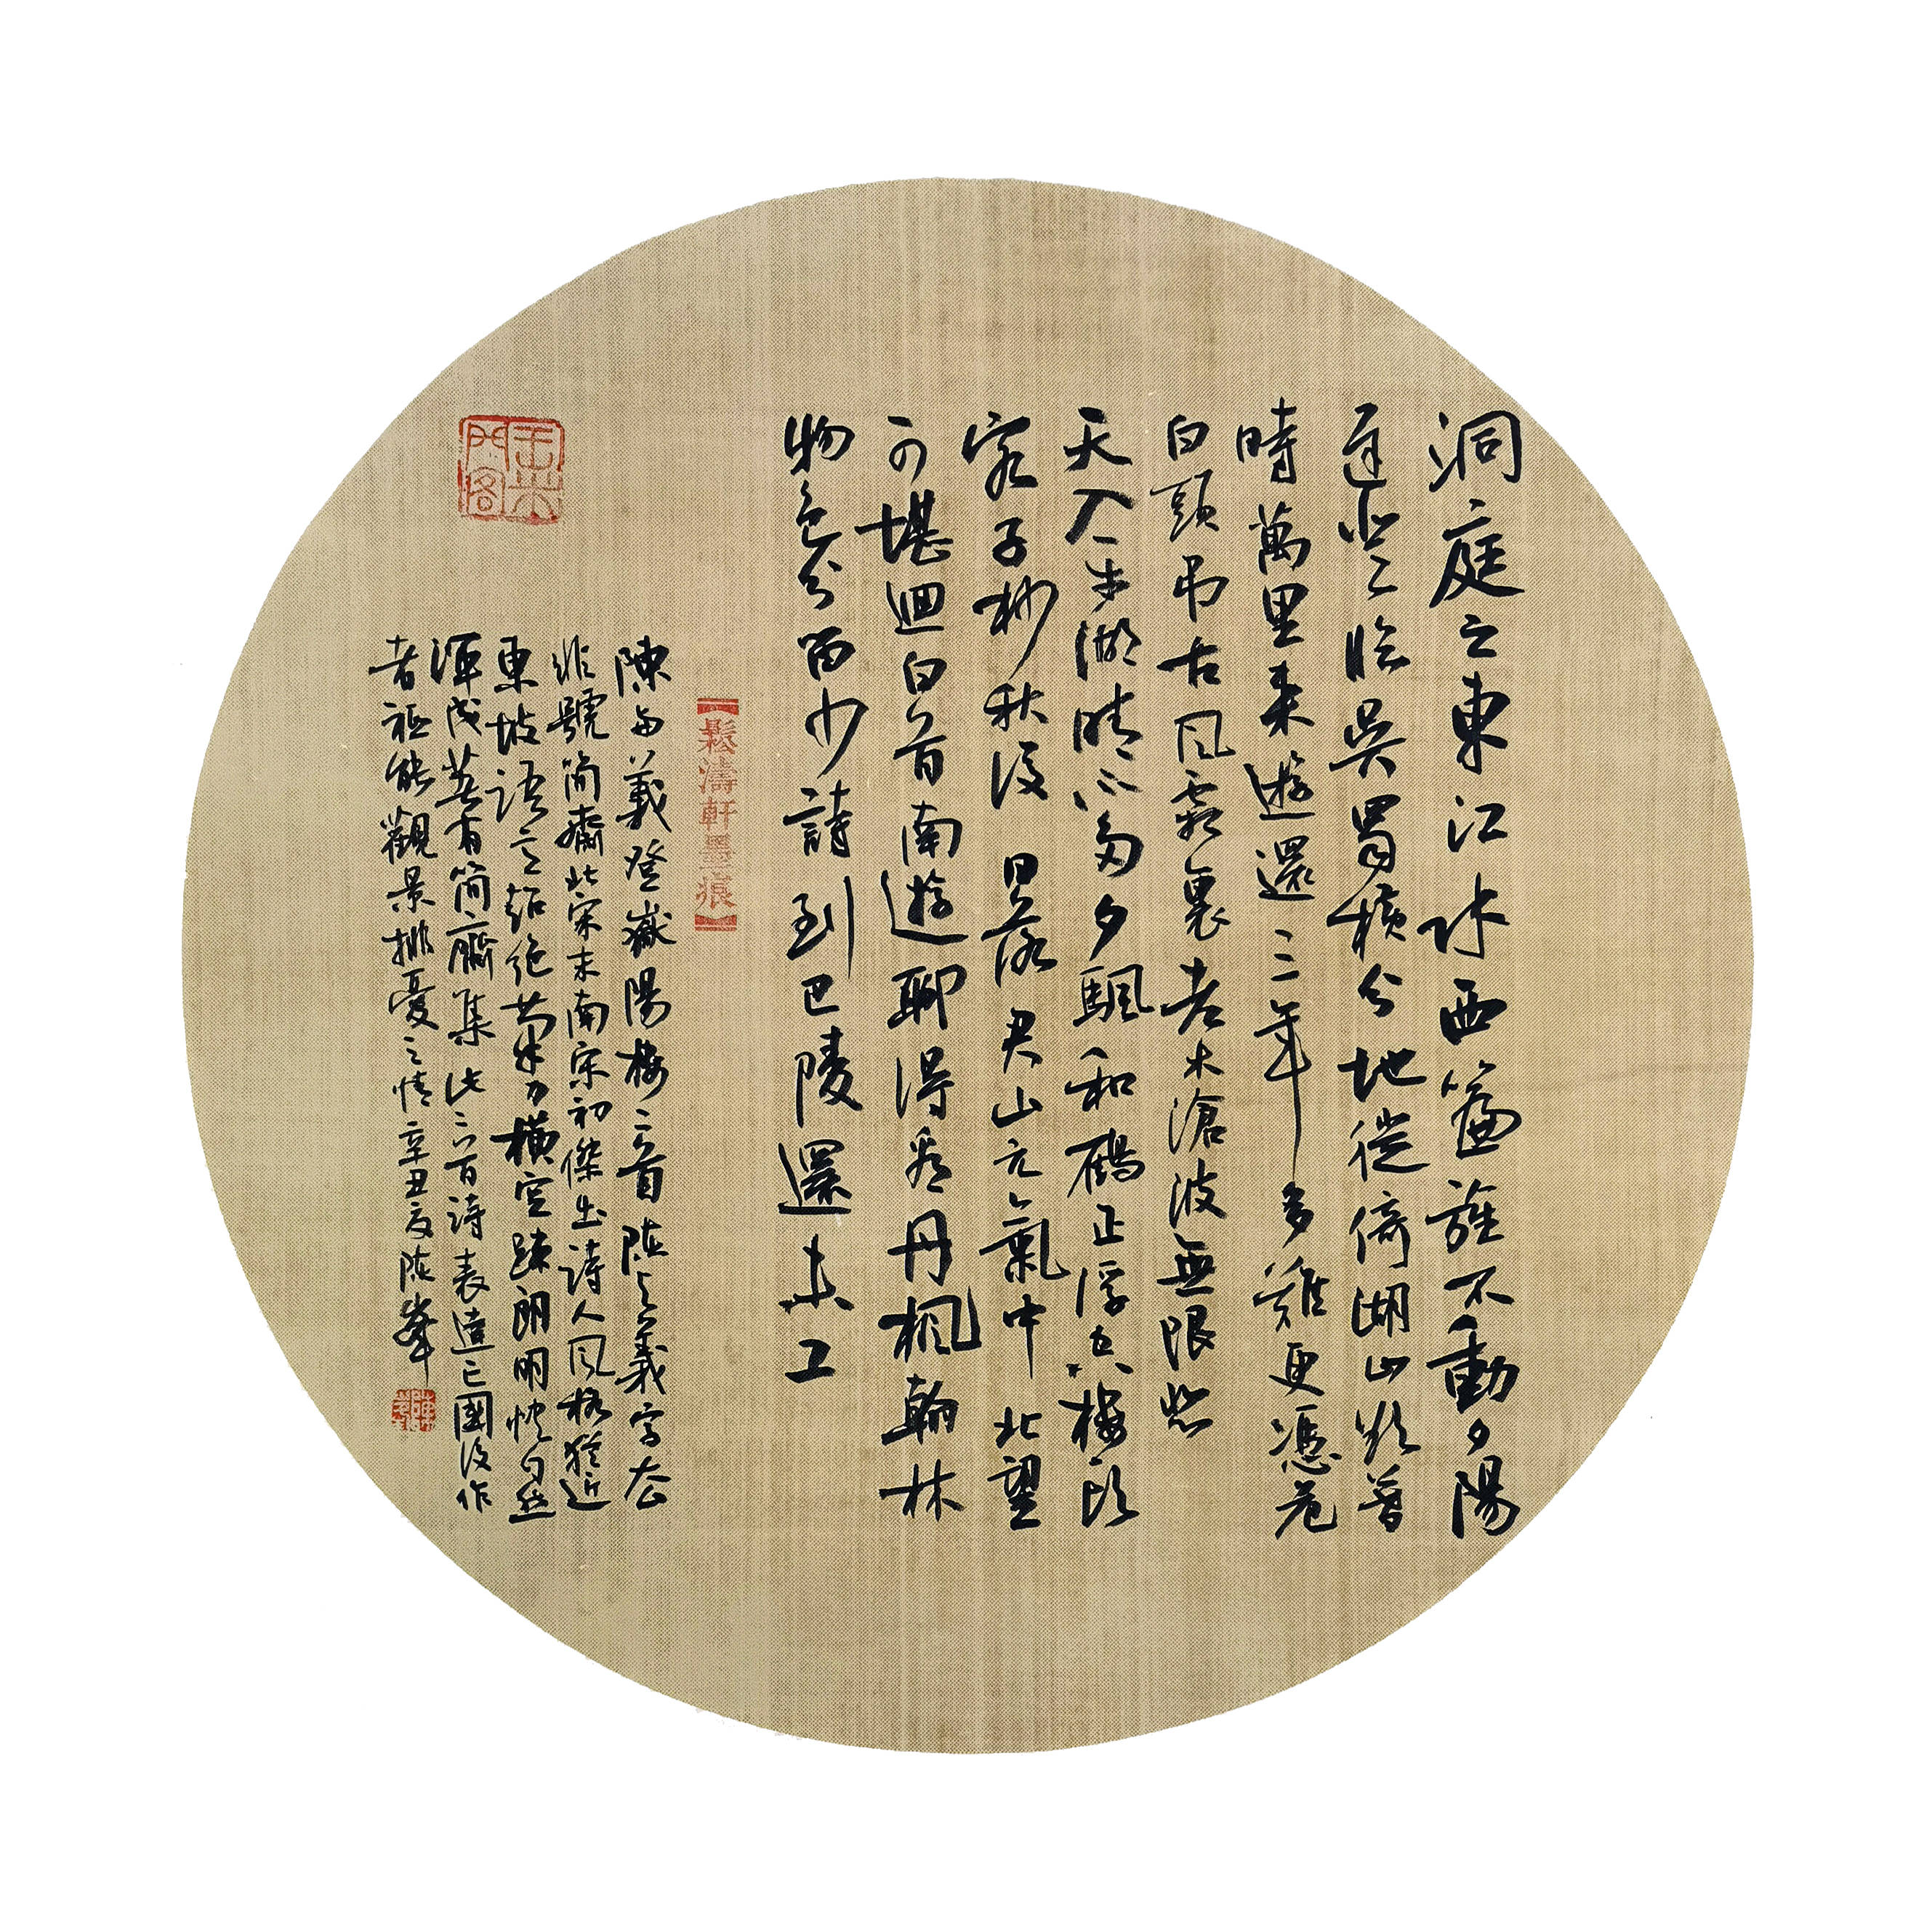 洞庭之東江水西簾旌不動夕陽
遲登臨吳蜀橫分地徙倚湖山欲暮
時萬里來遊還三年多難更憑危
白頭弔古風霜裏老木滄波無限悲
天入平湖晴不風夕颿和鴈正浮空樓頭
客子杪秋後日落君山元氣中北望
可堪迴白首南遊聊得看丹楓翰林
物色分留少詩到巴陵還未工
鬆濤軒墨痕
陳與義登嶽陽樓二首陳與義字去
非號簡齋北宋末南宋初傑出詩人風格猶近
東坡語言超絕筆力橫空疎朗明快自然
渾成著有簡齋集此二首詩表達亡國後作
者祗能觀景排憂之情辛丑夏陳峯